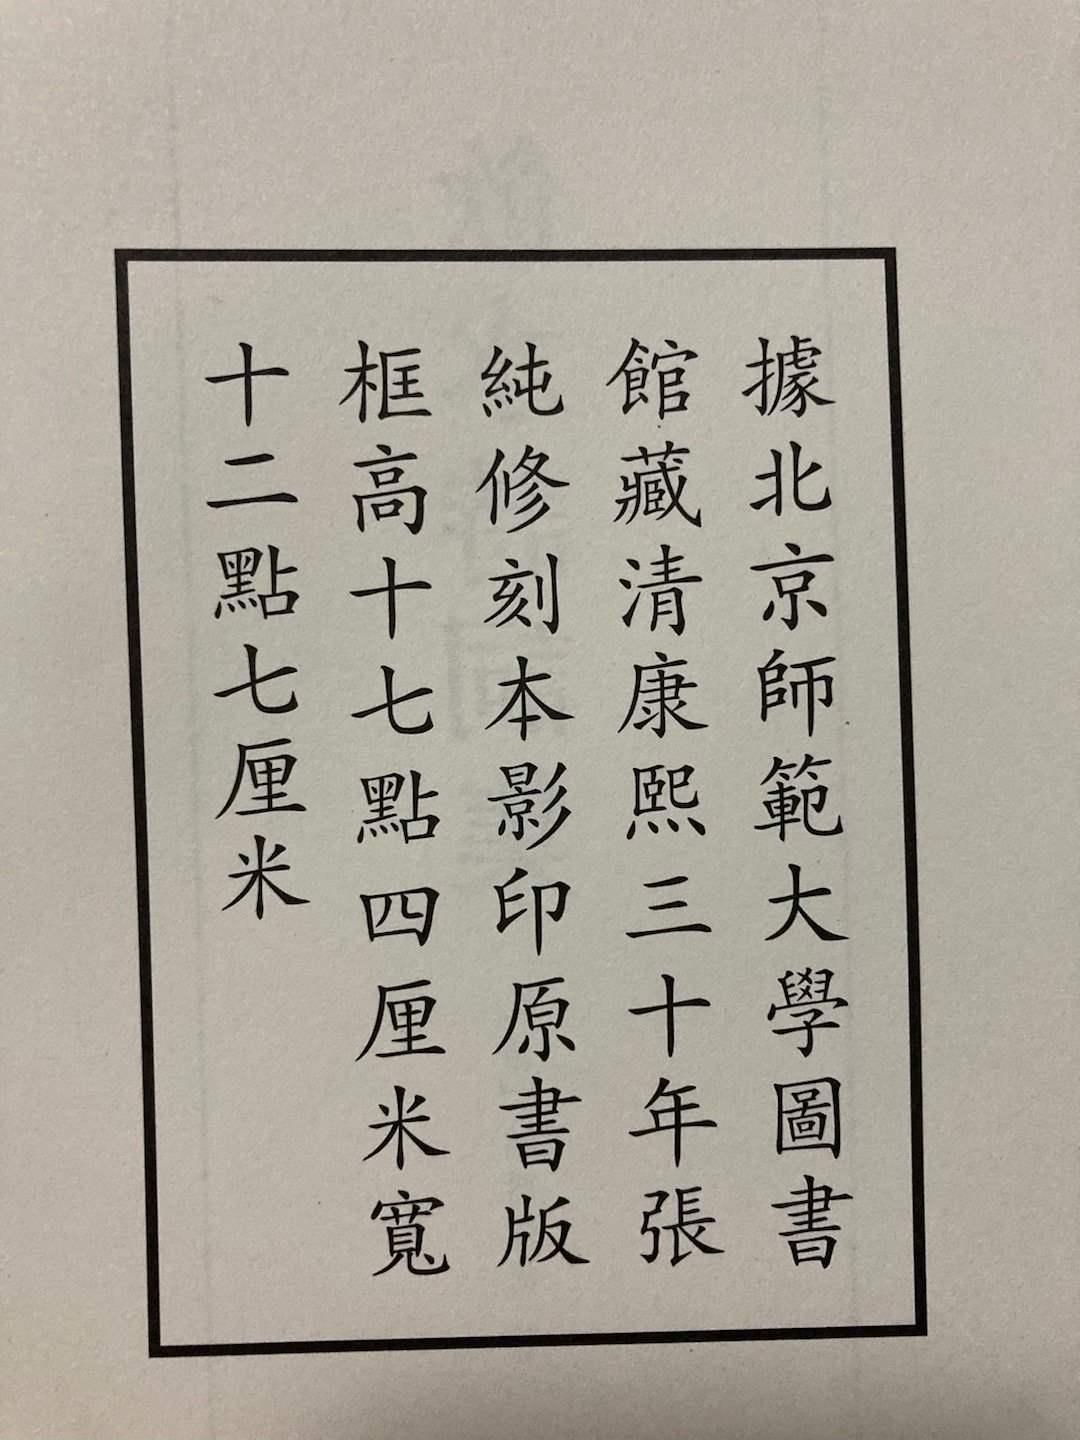 據北京師範大學圖書
館藏清康熙三十年張
純修刻本影印原書版
框高十七點四厘米寬
十二點七厘米